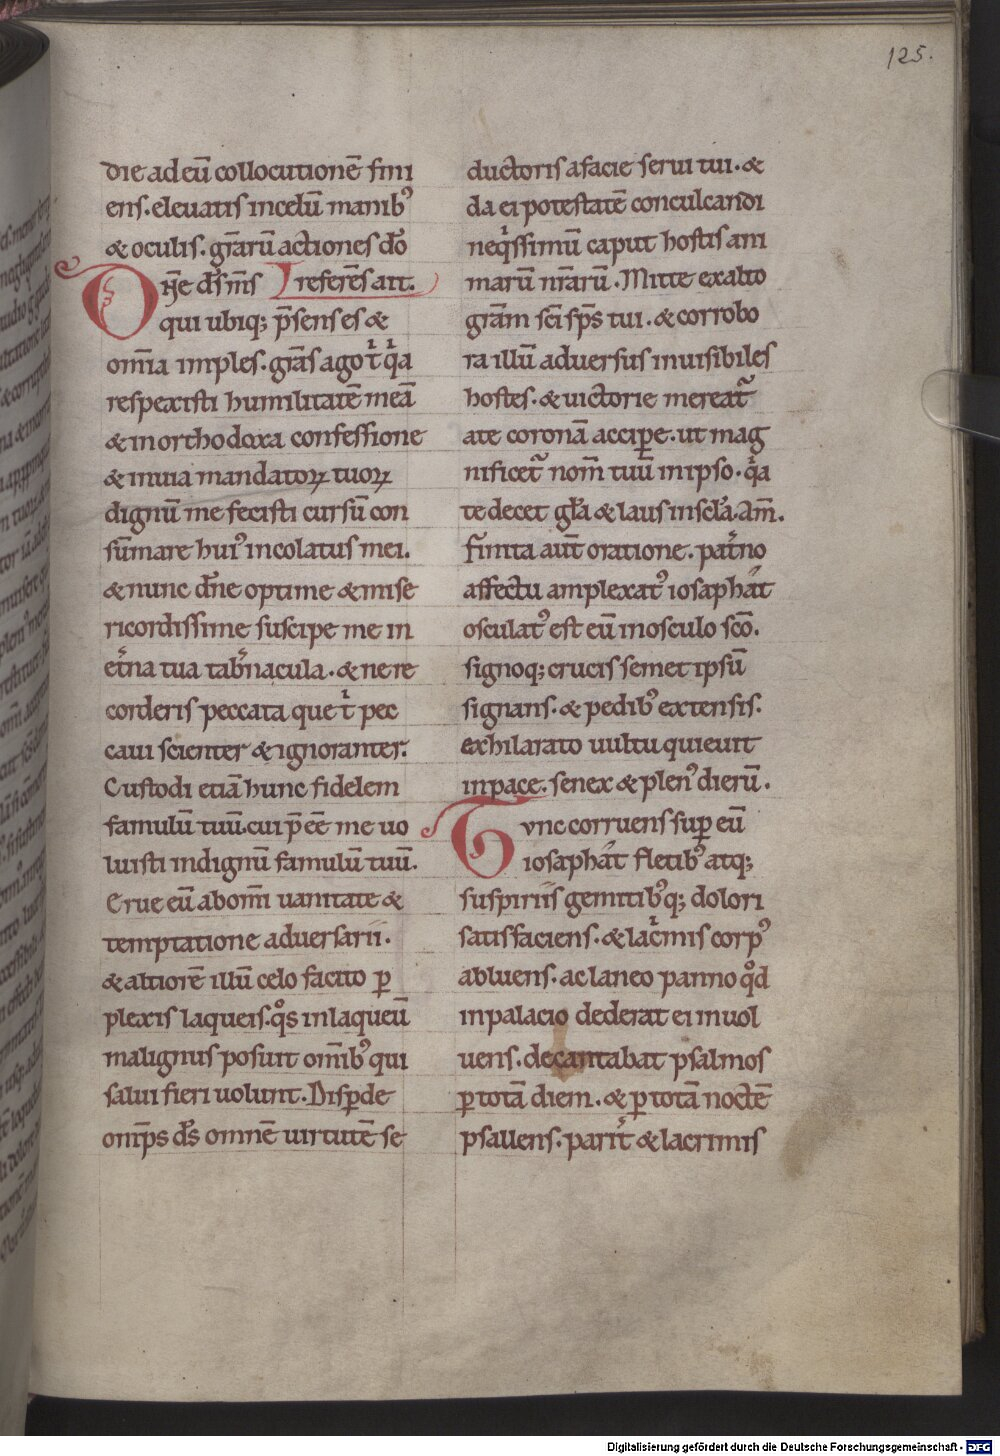 125.
die ad eū collocutionē fini
ens. eleuatis in celū manib᷒
& oculis. gr̄arū actiones dō
referēs ait.
Dn̄e ds̄ m̄s
qui ubiq; p̄sens es &
om̄ia imples. gr̄as ago t̄ qͥa
respexisti humilitatē meā
& in orthodoxa confessione
& in uia mandatoꝝ tuoꝝ
dignū me fecisti cursū con
sūmare hui᷒ incolatus mei.
& nunc dn̄e optime & mise
ricordissime suscipe me in
et̄na tua tab̄nacula. & ne re
corderis peccata que t̄ pec
caui scienter & ignoranter.
Custodi etiā hunc fidelem
famulū tuū. cui p̄ eē me uo
luisti indignū famulū tuū.
Erue eū ab om̄i uanitate &
temptatione aduersarii.
& altiorē illū celo facito ꝑ
plexis laqueis. qͦs in laqueū
malignus posuit om̄ib᷒ qui
salui fieri uolunt. Disꝑde
om̄ps ds̄ omnē uirtutē se
ductoris a facie serui tui. &
da ei potestatē conculcandi
neqͥssimū caput hostis ani
marū nr̄arū. Mitte ex alto
gr̄am sc̄i sp̄s tui. & corrobo
ra illū aduersus inuisibiles
hostes. & uictorie mereat᷑
a te coronā acciꝑe. ut mag
nificet᷑ nom̄ tuū in ipso. qͥa
te decet gl̄a & laus in sc̄la. Am̄.
Finita aut̄ oratione. pat̄no
affectu amplexat᷒ iosaphat
osculat᷒ est eū in osculo sc̄o.
signoq; crucis semet ipsū
signans. & pedib᷒ extensis.
exhilarato uultu quieuit
in pace. senex & plen᷒ dierū.
Tvnc corruens suꝑ eū
iosaphat fletib᷒ atq;
suspiriis gemitib᷒q; dolori
satisfaciens. & lac̄mis corp᷒
abluens. ac laneo panno qͦd
in palacio dederat ei inuol
uens. decantabat psalmos
ꝑ totā diem. & ꝑ totā noctē
psallens. parit̄ & lacrimis
Digitalisierung gefördert durch die Deutsche Forschungsgemeinschaft - DFG